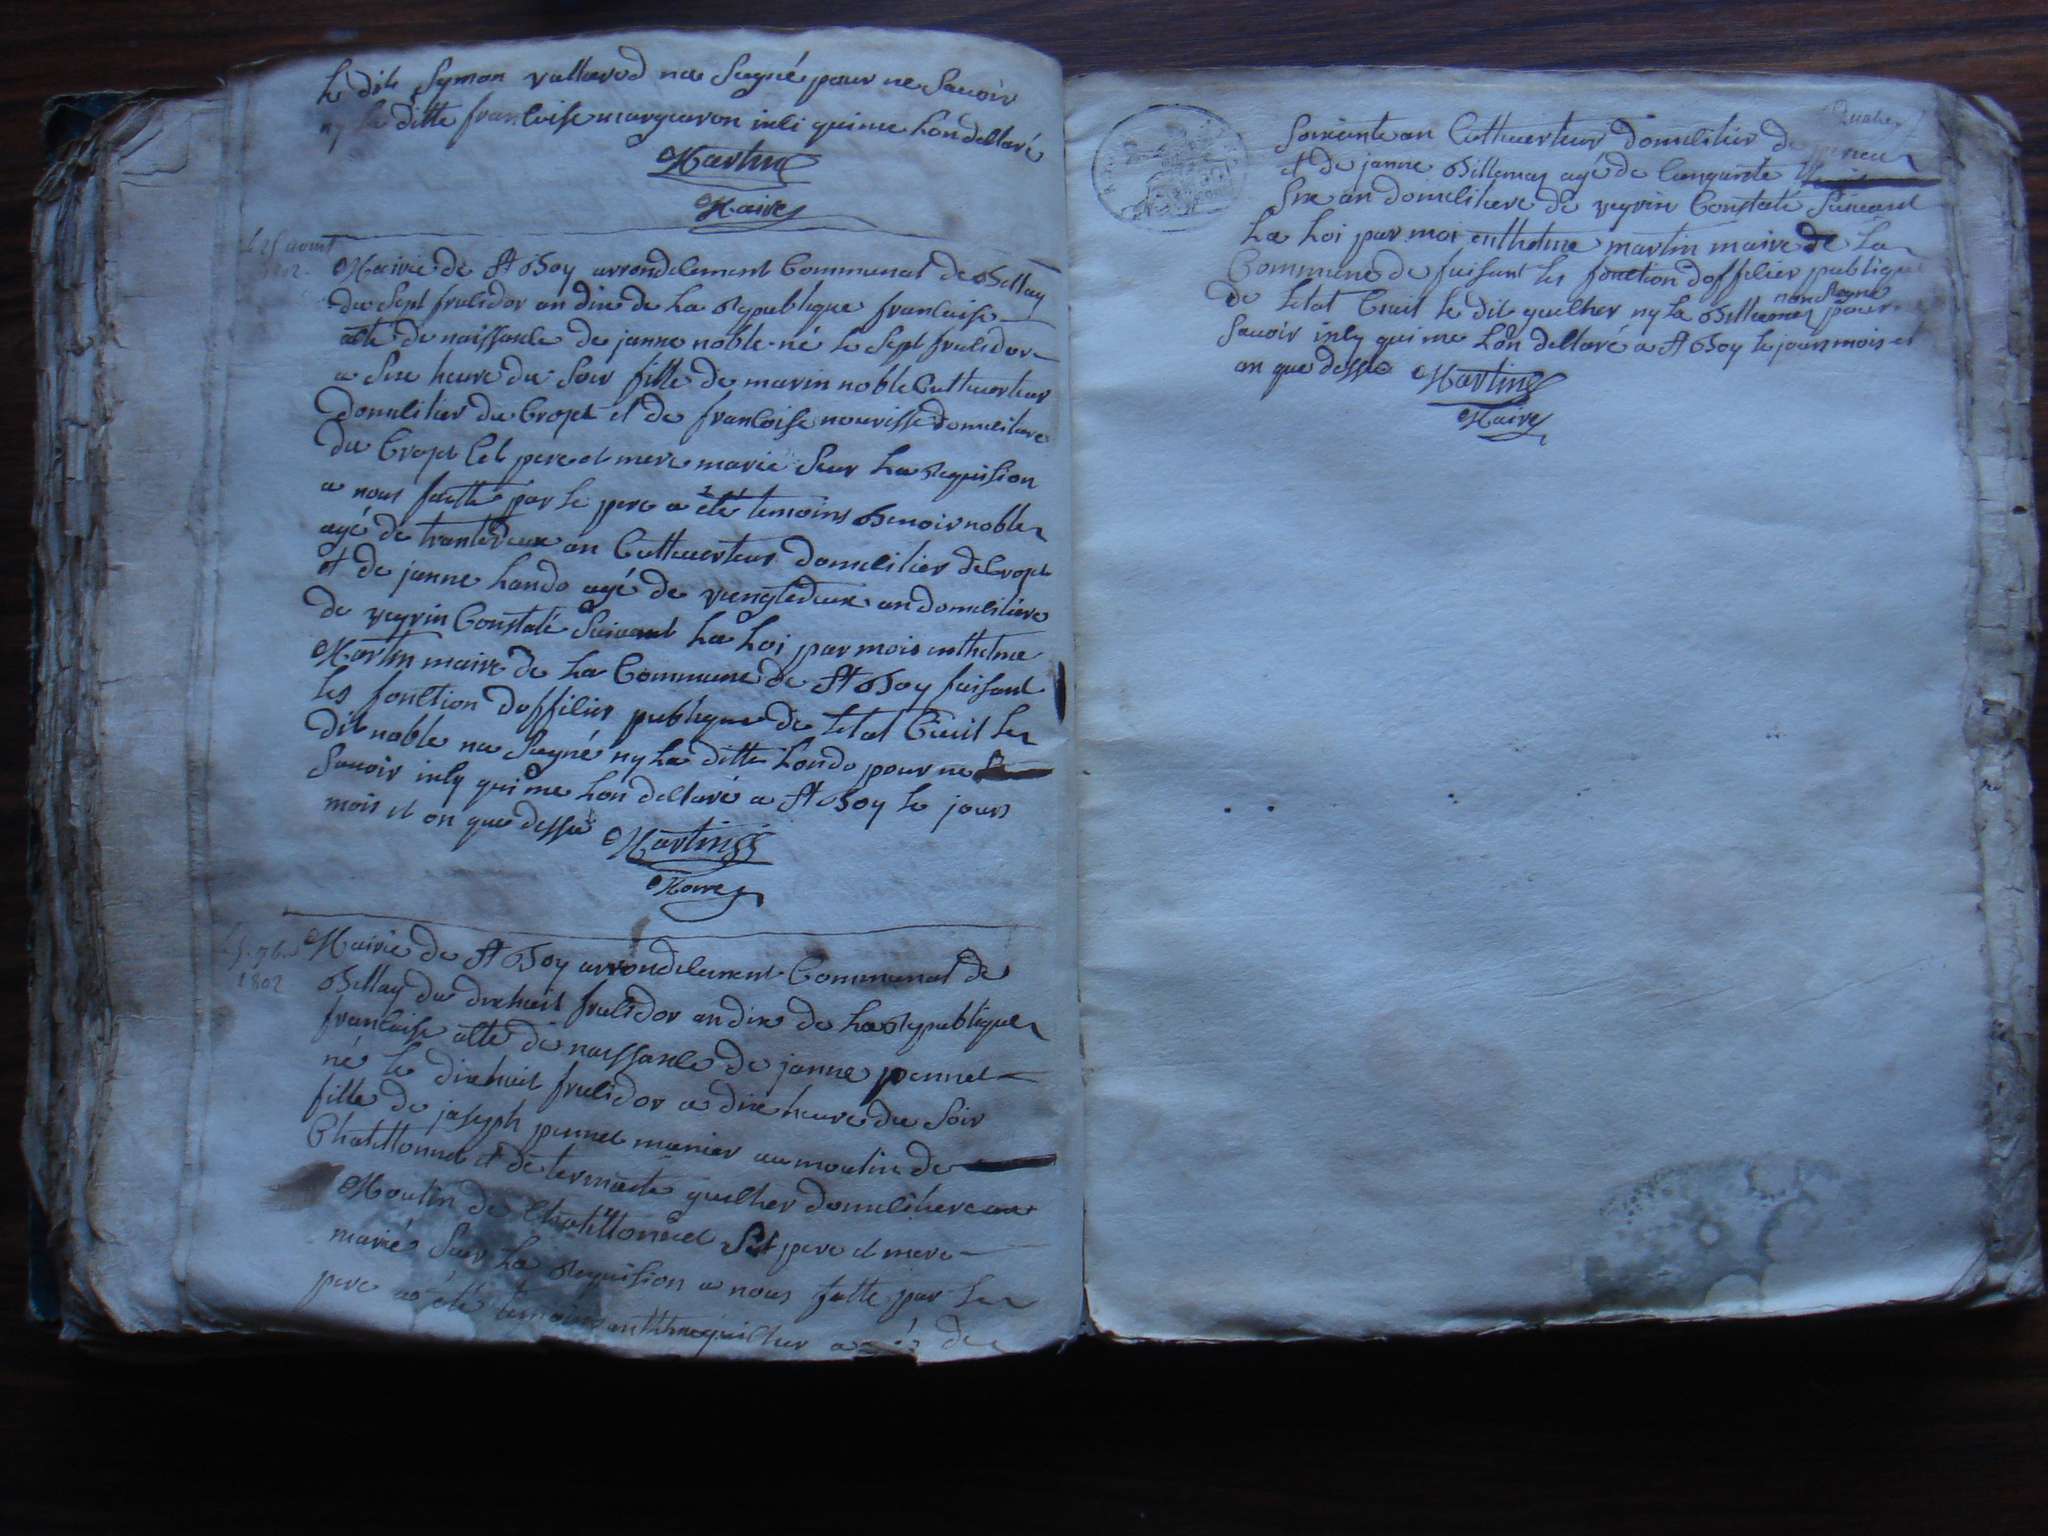 Le dit Symon vullierod na Signé pour ne Savoir
ny la ditte francoise margueron inli qui me lon declaré
Martin
Maire
le 25 aout
1802
Mairie de St Boy arrondicement Communal de Bellay
du Sept fructidor an dix de La Republique francaise
acte de naissance de janne noble né le Sept fructidor
a Six heure du Soir fille de marin noble Cultiverteur
domicilier du Cropt et de francoise nourisse domiciliere
du Cropt Cel pere et mere marié Sur La Requision
a nous faitte par le pere a été temoins Benoir noble
agé de trantedeux an Cultiverteur domicilier de Cropt
et de janne Lando agé de vengtedeux an domiciliere
de veyrin Constaté Suivant La Loi par mois enthelme
Martin maire de La Commune de St Boy faisant
les fonction dofficier publique de letat Civil le
dit noble na Signé ny La ditte Londo pour ne
Savoir inly qui me lon declaré a St Boy le jours
mois et an que dessu
Martin
Maire
1802
Mairie de St Boy arrondicement Communal de
Bellay du dixhuit fructidor an dix de La Republique
francaise acte de naissance de janne pennet
né le dixhuit fructidor a dix heure du Soir
fille de joseph pennet munier au moulin de
Chatillonnet et de guelher domiciliere au
Moulin de Chatillonnet Set pere et mere
marié Sur La Requision a nous fatte par le
pere a été temoins guilher agés de
Soixante an Cultiverteur domicilier de
et de janne Billemaz agé de Cenquante
Six an domiciliere de veyrin Constaté Suivant
La Loi par moi enthelme martin maire de La
Commune de faisant les fonction dofficier publique
de letat Civil le dit guelher ny la Billemaz non Signe pour
Savoir inly qui me lon declaré a St Boy le jours mois et
an que dessu
Martin
Maire